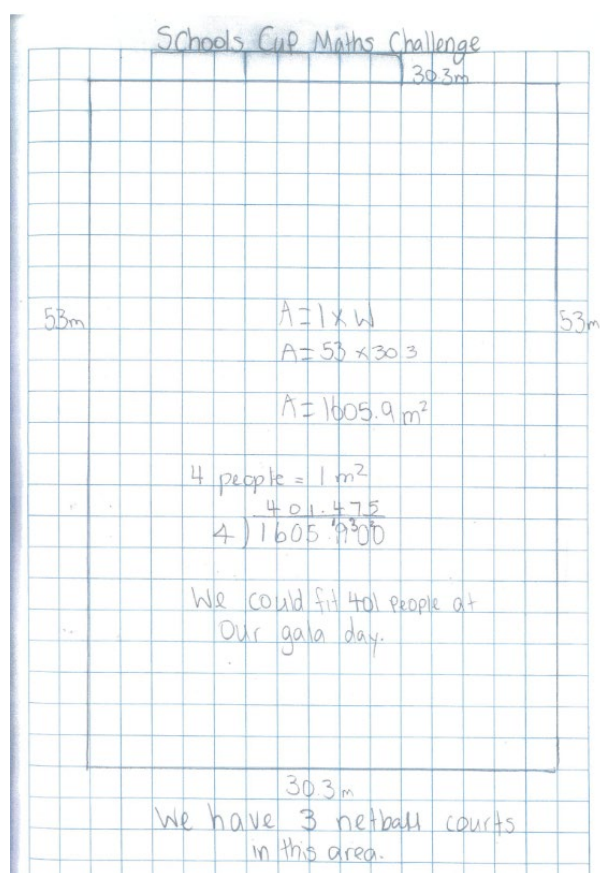 Schools Cup Maths Challenge
30.3m
53m
53m
A = l x W
A = 53 x 30.3
A = 1605.9 m²
4 people = 1 m²
401.475
4)1605.¹9³0²0
We could fit 401 people at
our gala day.
30.3m
We have 3 netball courts
in this area.